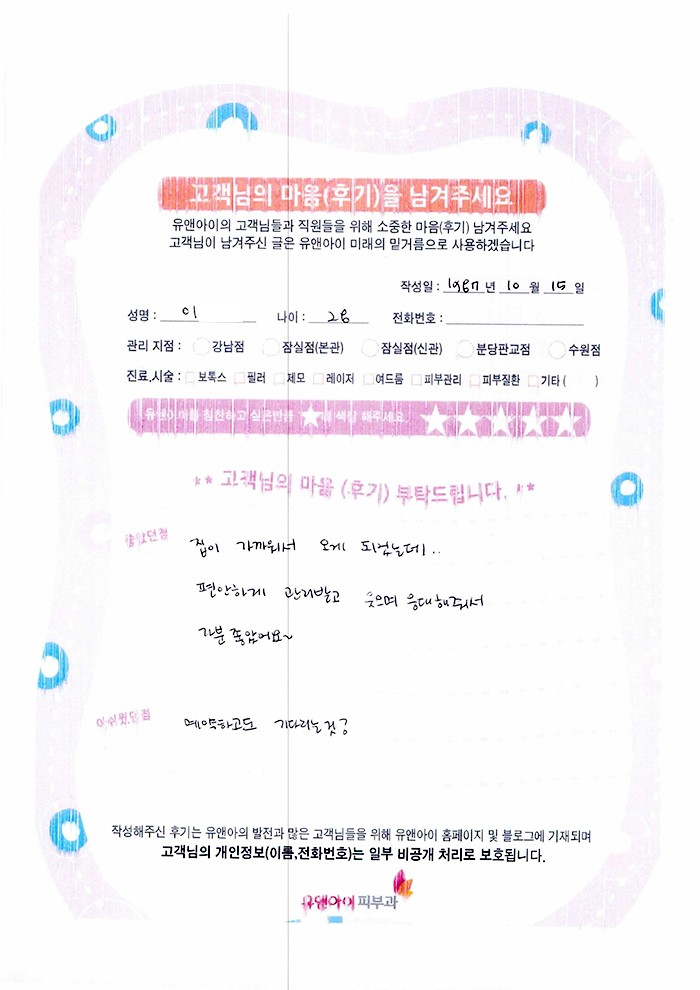 고객님의 마음(후기)을 남겨주세요
유앤아이의 고객님들과 직원들을 위해 소중한 마음(후기) 남겨주세요
고객님이 남겨주신 글은 유앤아이 미래의 밑거름으로 사용하겠습니다
작성일 : 1987 년 10 월 15 일
성명 : 이 나이 : 28 전화번호 :
관리 지점 : 강남점 잠실점(본관) 잠실점(신관) 분당판교점 수원점
진료,시술 : 보톡스 필러 제모 레이저 여드름 피부관리 피부질환 기타 ( )
유앤아이를 칭찬하고 싶은만큼 ★에 색칠 해주세요 ★★★★★
** 고객님의 마음 (후기) 부탁드립니다. **
좋았던점 집이 가까워서 오게 되었는데..
편안하게 관리받고 웃으며 응대해줘서
기분 좋았어요~
아쉬웠던점 예약하고도 기다리는것
작성해주신 후기는 유앤아의 발전과 많은 고객님들을 위해 유앤아이 홈페이지 및 블로그에 기재되며
고객님의 개인정보(이름,전화번호)는 일부 비공개 처리로 보호됩니다.
유앤아이 피부과